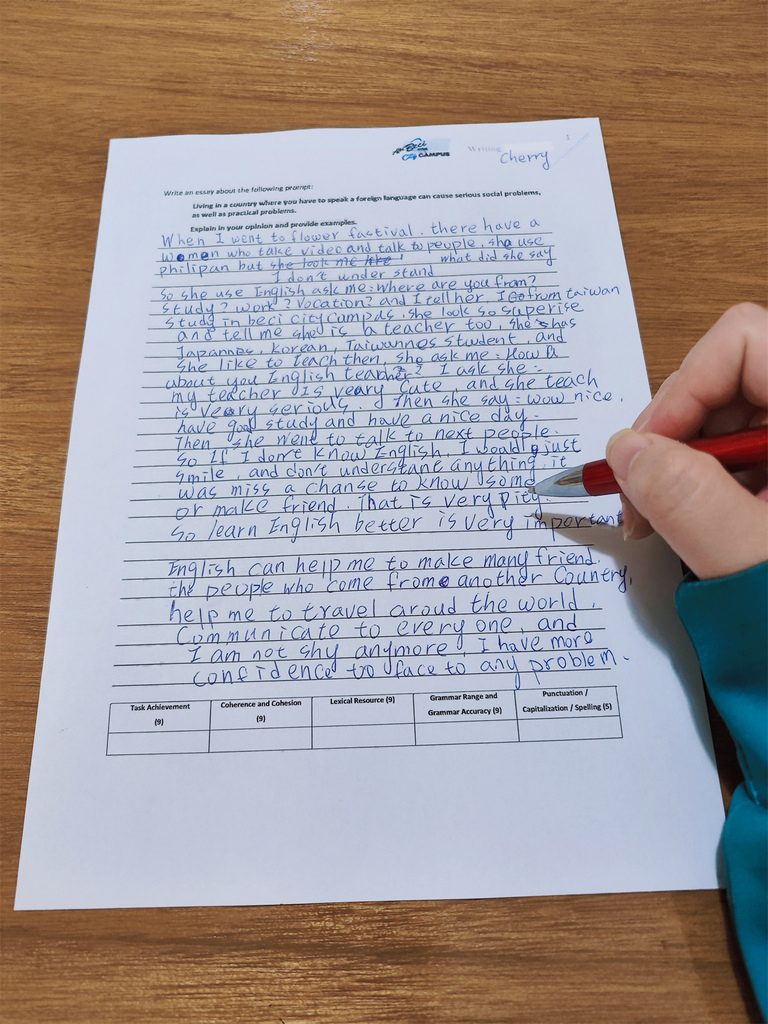 Beci
City CAMPUS
Writing
1
Cherry
Write an essay about the following prompt:
Living in a country where you have to speak a foreign language can cause serious social problems,
as well as practical problems.
Explain in your opinion and provide examples.
When I went to flower factival. there have a
women who take video and talk to people, she use
philipan but she look me like what did she say
I don't under stand
So she use English ask me: Where are you from?
study? work? Vocation? and I tell her, I from taiwan
study in beci city campus. she look so superise
and tell me she is a teacher too, she has
Japannes, Korean, Taiwannes student, and
she like to teach then, she ask me: How
about you English tearher? I ask she:
my teacher Is veary cute, and she teach
is veary serious. Then she say: wow nice,
have good study and have a nice day.
Then she went to talk to next people.
So If I don't know English, I would just
smile, and don't understane anything. it
was miss a chanse to know some
or make friend. That is very pity.
So learn English better is very important
English can help me to make many friend.
the people who come frome another Country.
help me to travel aroud the world.
Communicate to every one, and
I am not shy anymore, I have more
confidence to face to any problem.
Task Achievement (9)
Coherence and Cohesion (9)
Lexical Resource (9)
Grammar Range and Grammar Accuracy (9)
Punctuation / Capitalization / Spelling (5)